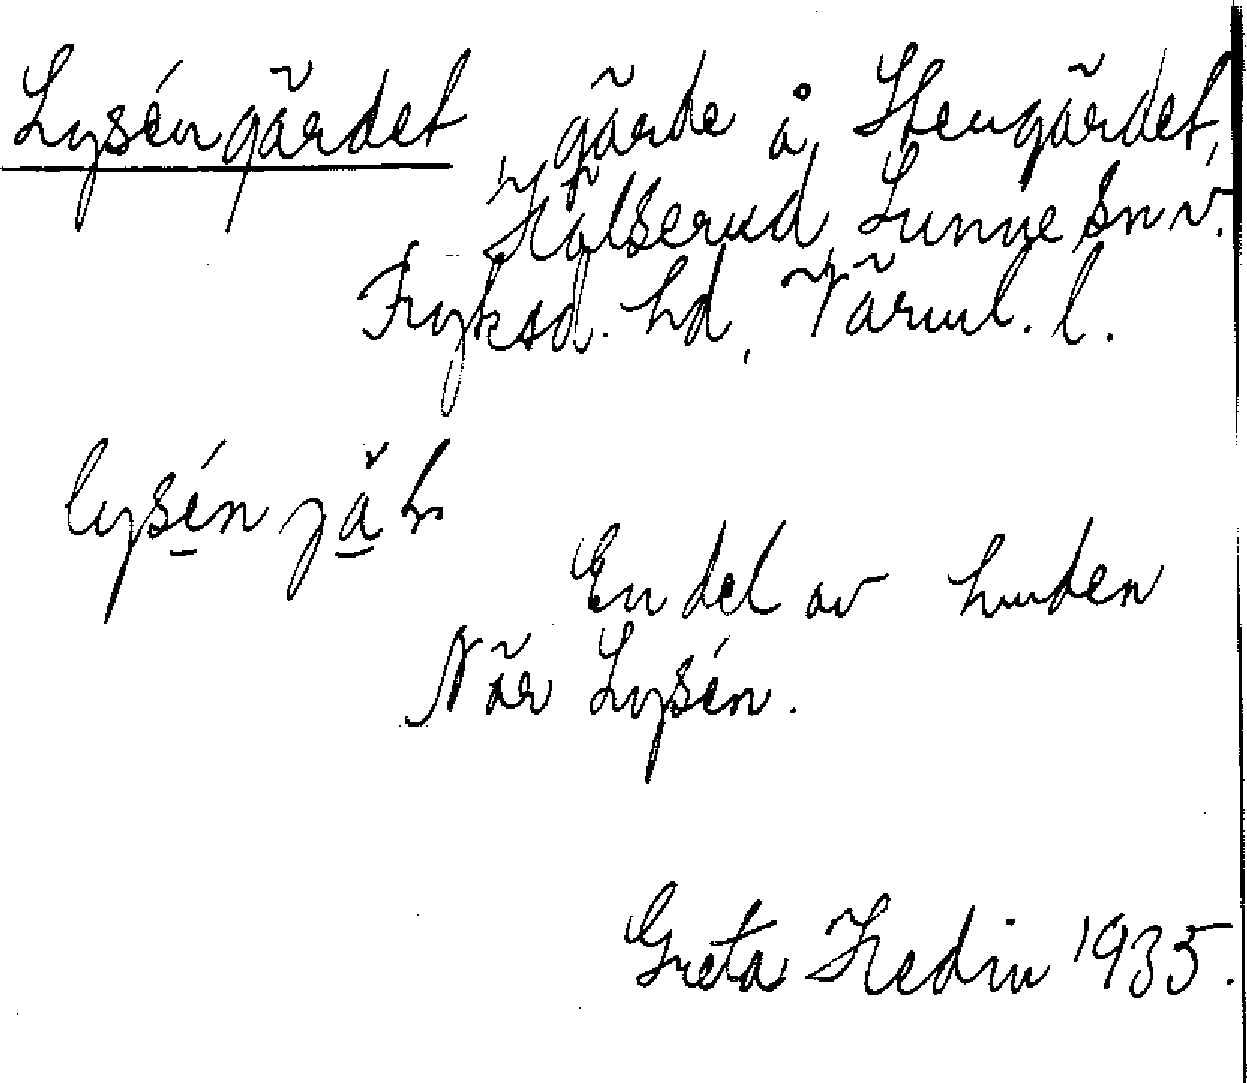 Lysén gärdet, gärde å Stengärdet,
Hälserud, Sunne sn v.
Fryksd. hd, Värml. l.
lysén jä
En del av
När Lysén.
Greta Hedin 1935.